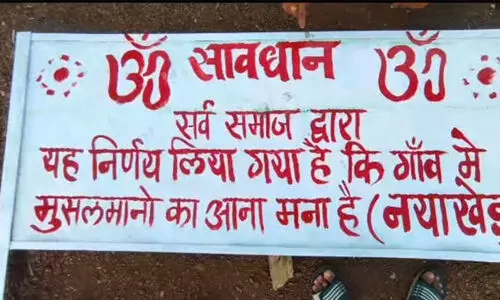 ॐ सावधान ॐ
सर्व समाज द्वारा
यह निर्णय लिया गया है कि गाँव मे
मुसलमानो का आना मना है (नयाखेड़